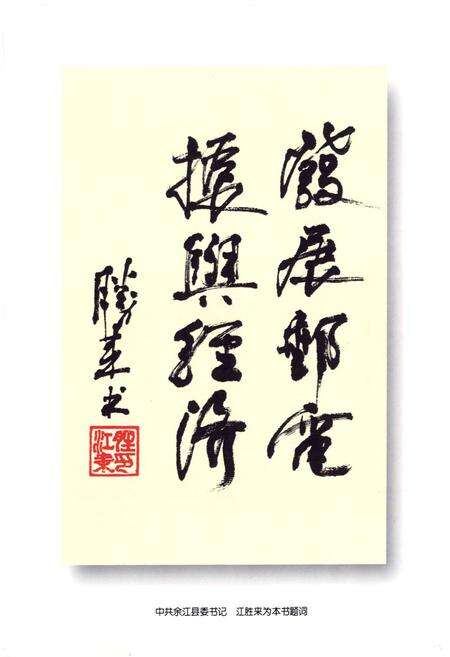 發展郵電
振興經濟
勝来书
江胜来印
中共余江县委书记　江胜来为本书题词